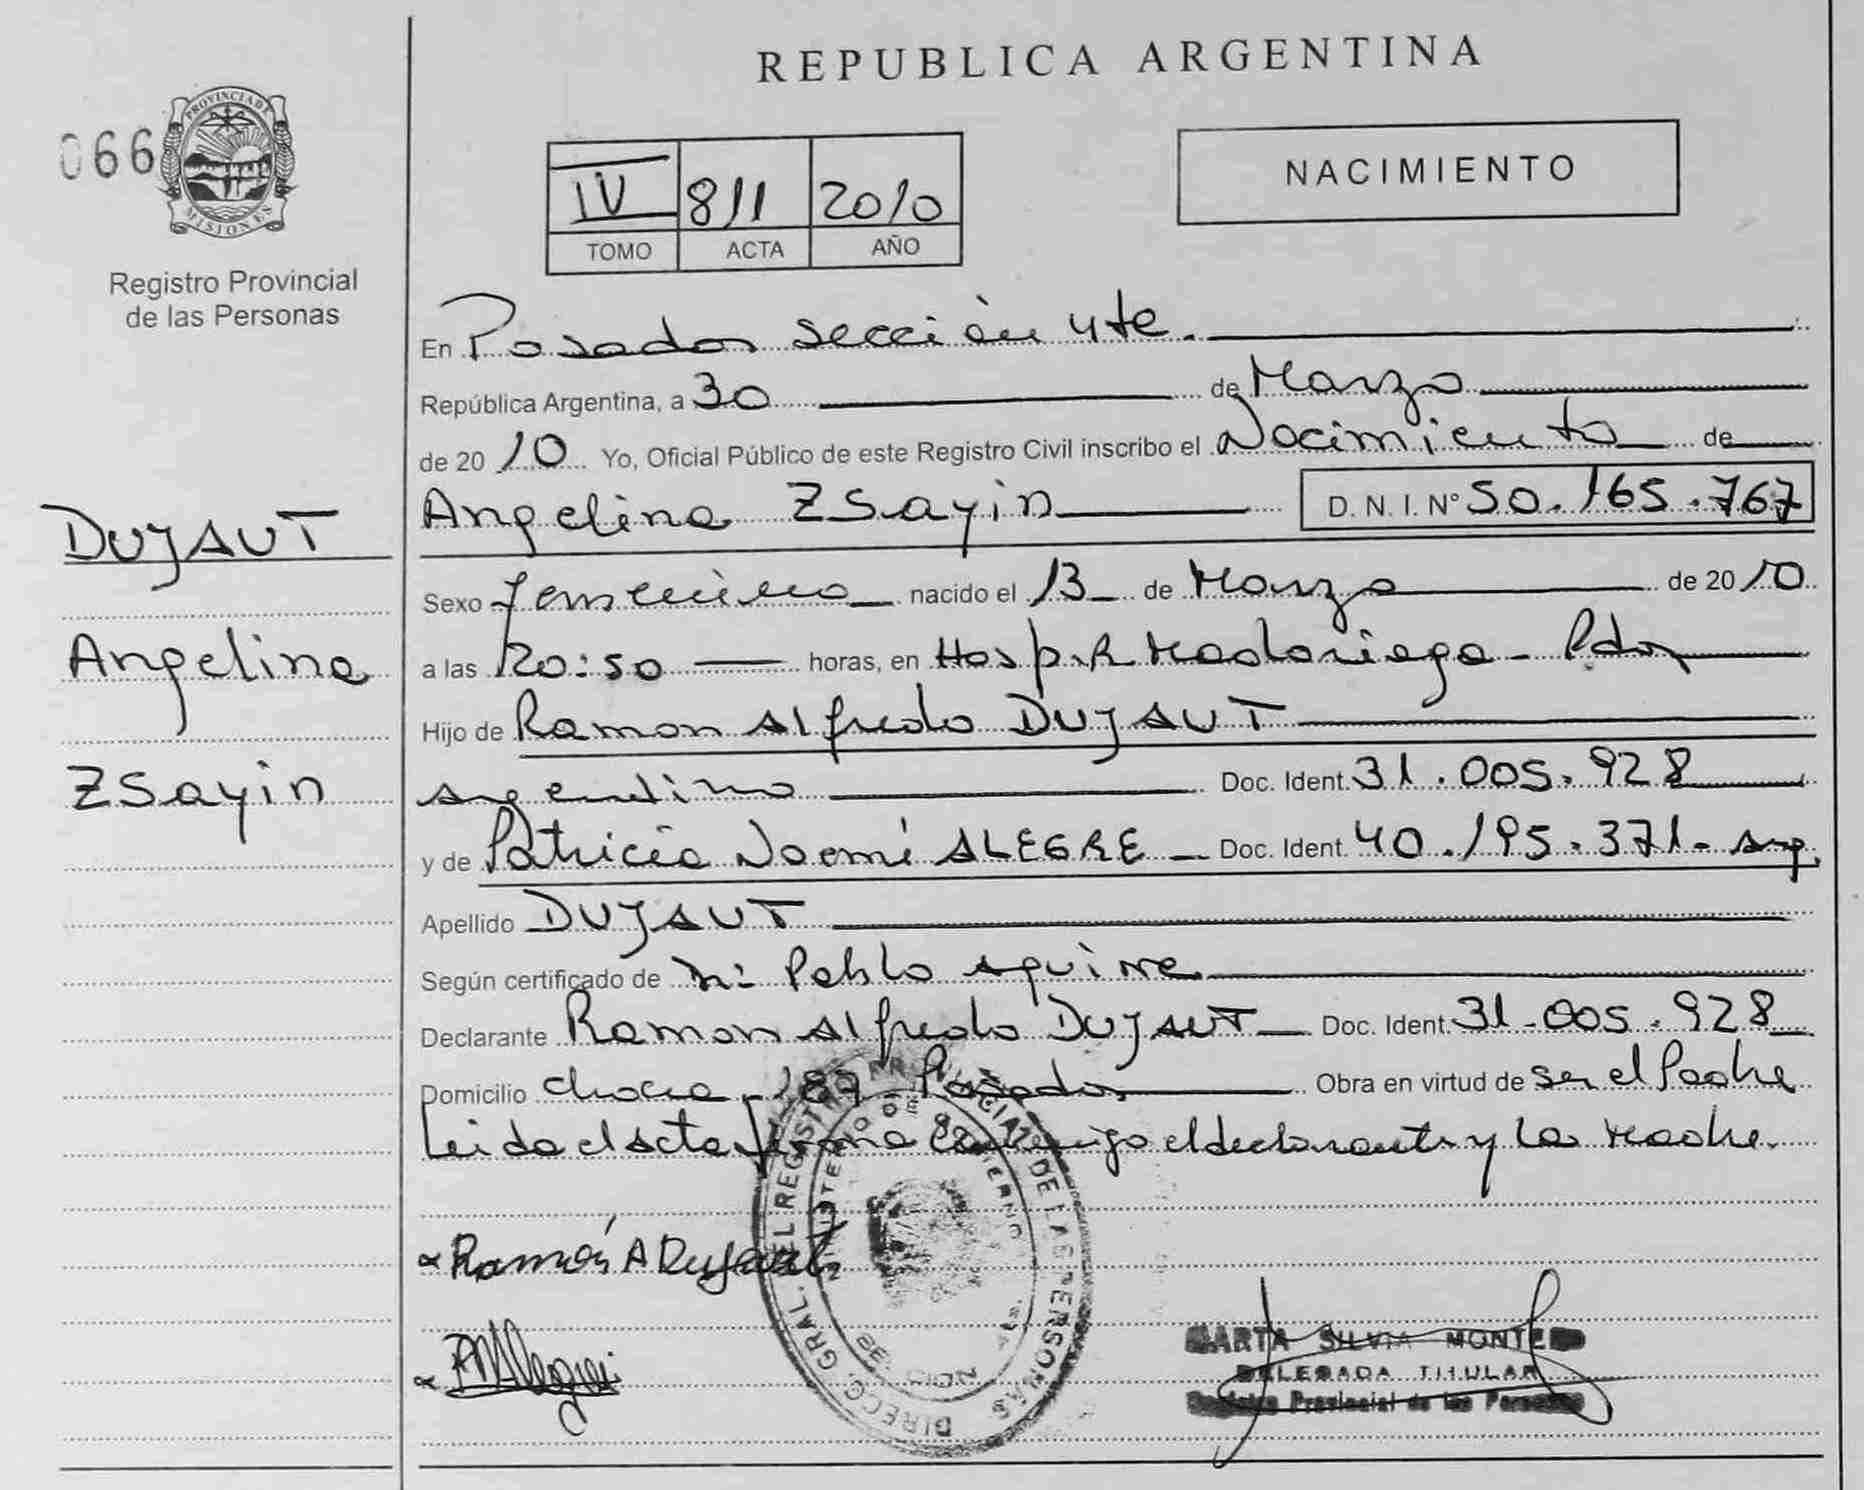 REPUBLICA ARGENTINA
066
PROVINCIA DE
MISIONES
Registro Provincial
de las Personas
IV 811 2010
TOMO ACTA AÑO
NACIMIENTO
En Posadas sección 4te.
República Argentina, a 30 de Marzo
de 2010 Yo, Oficial Público de este Registro Civil inscribo el Nacimiento de
Angelina Zsayin D. N. I. Nº 50.165.767
DUJAUT
Angelina
Zsayin
Sexo Femenino nacido el 13 de Marzo de 2010
a las 20:50 horas, en Hosp. R Madariaga - Pdas
Hijo de Ramon Alfredo DUJAUT
argentino Doc. Ident. 31.005.928
y de Patricia Noemí ALEGRE Doc. Ident. 40.195.371- arg.
Apellido DUJAUT
Según certificado de Pablo Aguirre
Declarante Ramon Alfredo DUJAUT Doc. Ident. 31.005.928
Domicilio 187 Posadas Obra en virtud de ser el Padre
Leida el acta firma conmigo el declarante y la Madre.
Ramón A Dujaut
DIRECC. GRAL. DEL REGISTRO PROVINCIAL DE LAS PERSONAS
MINISTERIO DE GOBIERNO
MARTA SILVIA MONTE
DELEGADA TITULAR
Registro Provincial de las Personas